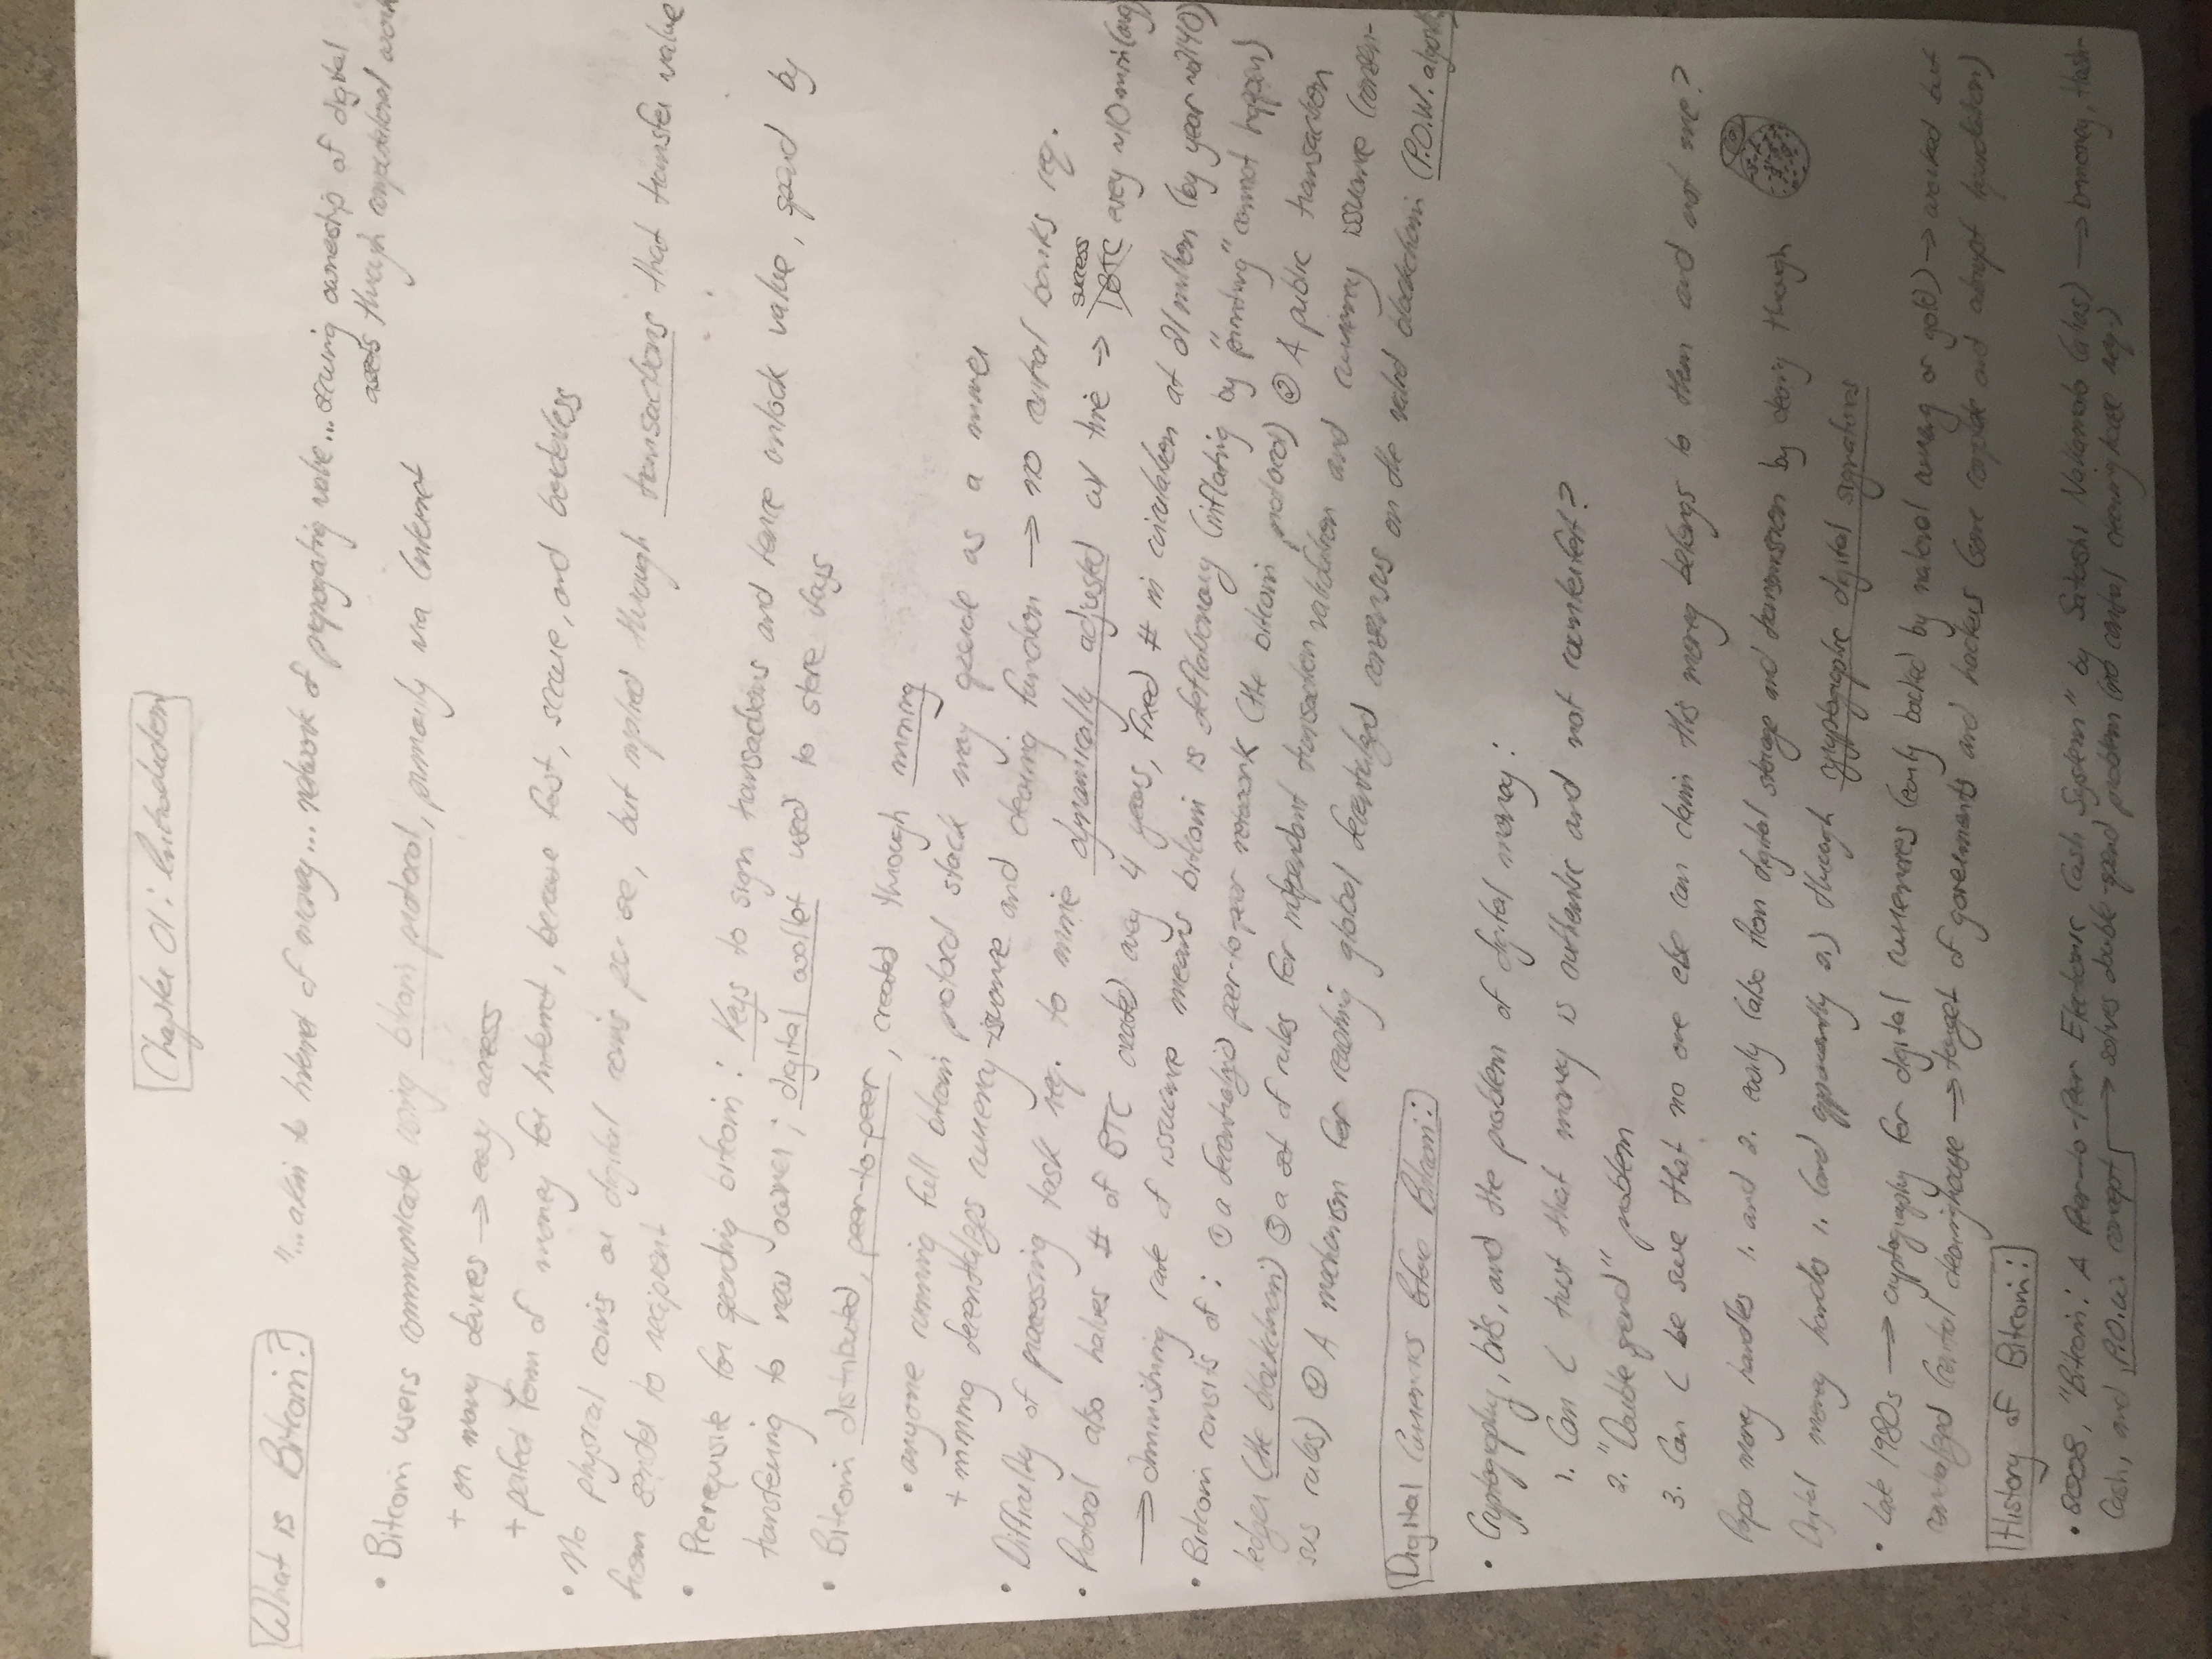 Chapter 01: Introduction
What is Bitcoin?
"...akin to Internet of money... network of propagating value... securing ownership of digital
assets through computational work
• Bitcoin users communicate using bitcoin protocol, primarily via Internet
+ on many devices → easy access
+ perfect form of money for Internet, because fast, secure, and borderless
• No physical coins or digital coins per se, but implied through transactions that transfer value
from sender to recipient
• Prerequisite for spending bitcoin: Keys to sign transactions and hence unlock value, spend by
transferring to new owner; digital wallet used to store keys
• Bitcoin distributed, peer-to-peer, created through mining
• anyone running full bitcoin protocol stack may operate as a miner
+ mining decentralizes currency issuance and clearing function → no central banks req.
• Difficulty of processing task req. to mine dynamically adjusted w/ time → success every ~10 min (avg)
• Protocol also halves # of BTC created every 4 years, fixed # in circulation at 21 million (by year ~2140)
→ diminishing rate of issuance means bitcoin is deflationary (inflating by "printing" cannot happen)
• Bitcoin consists of: ① a decentralized peer-to-peer network (the bitcoin protocol) ② A public transaction
ledger (the blockchain) ③ a set of rules for independent transaction validation and currency issuance (consen-
sus rules) ④ A mechanism for reaching global decentralized consensus on the valid blockchain (P.O.W. algorithm
Digital Currencies before Bitcoin:
• Cryptography, bits, and the problem of digital money:
1. Can I trust that money is authentic and not counterfeit?
2. "Double spend" problem
3. Can I be sure that no one else can claim this money belongs to them and not me?
Paper money handles 1. and 2. easily (also than digital storage and transmission by doing through
Digital money handles 1. (and apparently 2.) through cryptographic digital signatures
• Late 1980s → cryptography for digital currencies (early backed by national currency or gold) → worked but
centralized (central clearinghouse → target of governments and hackers (some corrupt and abrupt liquidation)
History of Bitcoin:
• 2008, "Bitcoin: A Peer-to-Peer Electronic Cash System" by Satoshi Nakamoto (alias) → b-money, Hash-
Cash, and P.O.W. concept → solves double-spend problem (no central clearinghouse req.)